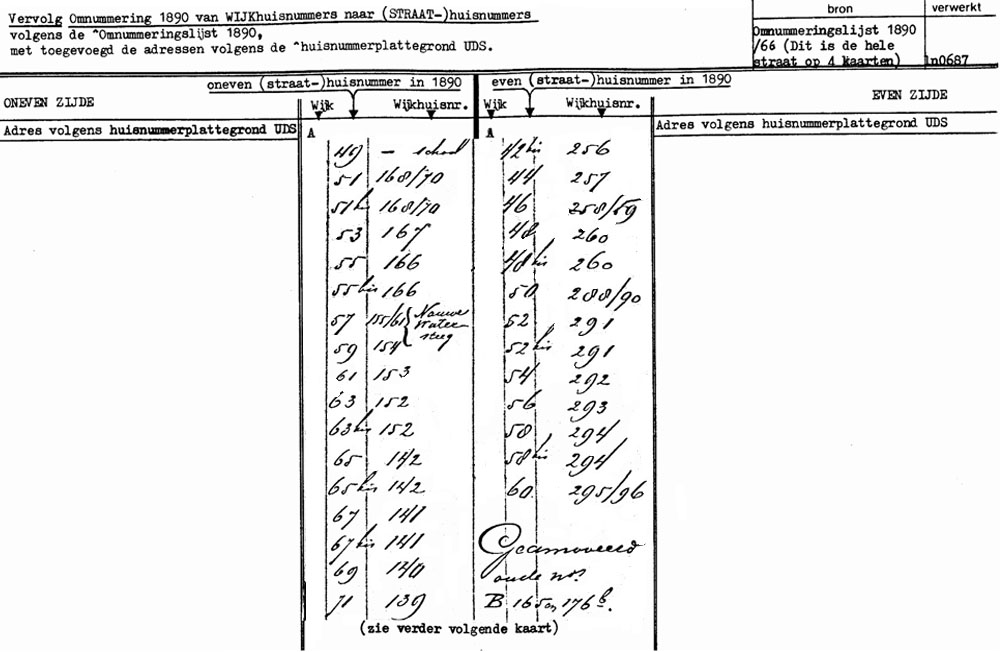 Vervolg Omnummering 1890 van WIJKhuisnummers naar (STRAAT-)huisnummers
volgens de ^Omnummeringslijst 1890,
met toegevoegd de adressen volgens de ^huisnummerplattegrond UDS.
bron
verwerkt
Omnummeringslijst 1890
/66 (Dit is de hele
straat op 4 kaarten)
ln0687
oneven (straat-)huisnummer in 1890
even (straat-)huisnummer in 1890
ONEVEN ZIJDE
Wijk Wijkhuisnr.
Wijk Wijkhuisnr.
EVEN ZIJDE
Adres volgens huisnummerplattegrond UDS
A
A
Adres volgens huisnummerplattegrond UDS
49 – school
42 bis 256
51 168/70
44 257
51 b 168/70
46 258/59
53 167
48 260
55 166
48 bis 260
55 bis 166
50 288/90
57 155/61 { Nauwe
Water-
steeg
52 291
59 154
52 bis 291
61 153
54 292
63 152
56 293
63 bis 152
58 294
65 142
58 bis 294
65 bis 142
60 295/96
67 141
67 bis 141
Geamoveerd
69 140
oude nos.
71 139
B 165 en 176 b.
(zie verder volgende kaart)